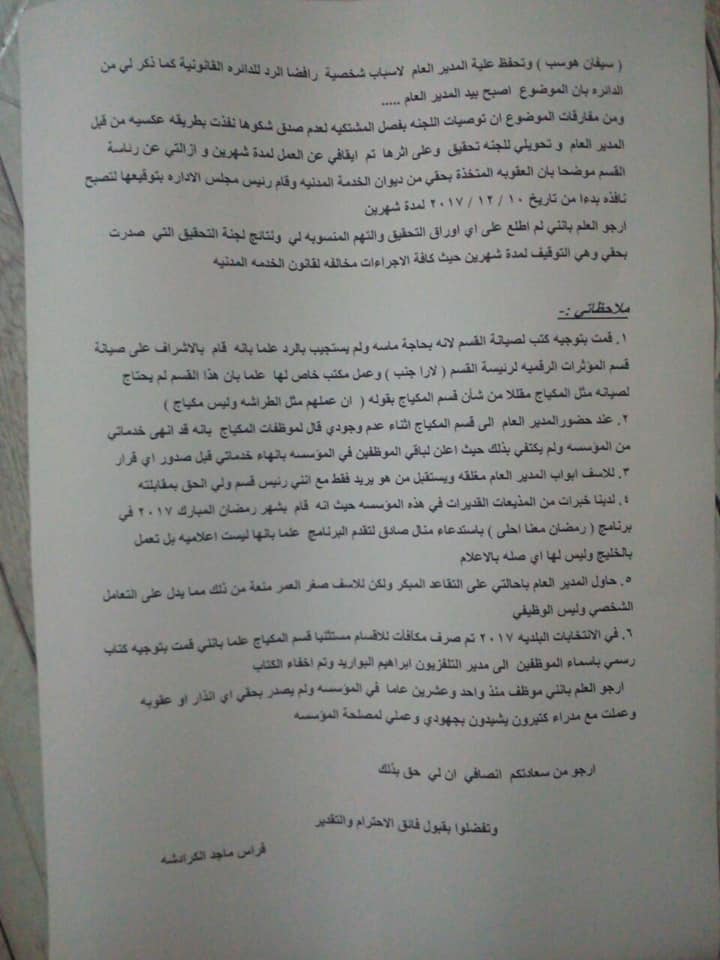 ( سيفان هوسب ) وتحفظ علية المدير العام لاسباب شخصية رافضا الرد للدائره القانونية كما ذكر لي من
الدائره بان الموضوع اصبح بيد المدير العام .....
ومن مفارقات الموضوع ان توصيات اللجنه بفصل المشتكيه لعدم صدق شكوها نفذت بطريقه عكسيه من قبل
المدير العام و تحويلي للجنه تحقيق وعلى اثرها تم ايقافي عن العمل لمدة شهرين و ازالتي عن رئاسة
القسم موضحا بان العقوبه المتخذة بحقي من ديوان الخدمة المدنيه وقام رئيس مجلس الاداره بتوقيعها لتصبح
نافذه بدءا من تاريخ ١٠ / ١٢ / ٢٠١٧ لمدة شهرين
ارجو العلم بانني لم اطلع على اي اوراق التحقيق والتهم المنسوبه لي ونتائج لجنة التحقيق التي صدرت
بحقي وهي التوقيف لمدة شهرين حيث كافة الاجراءات مخالفه لقانون الخدمه المدنيه
ملاحظاتي :-
١. قمت بتوجيه كتب لصيانة القسم لانه بحاجة ماسه ولم يستجيب بالرد علما بانه قام بالاشراف على صيانة
قسم المؤثرات الرقميه لرئيسة القسم ( لارا جنب ) وعمل مكتب خاص لها علما بان هذا القسم لم يحتاج
لصيانه مثل المكياج مقللا من شأن قسم المكياج بقوله ( ان عملهم مثل الطراشه وليس مكياج )
٢. عند حضورالمدير العام الى قسم المكياج اثناء عدم وجودي قال لموظفات المكياج بانه قد انهى خدماتي
من المؤسسه ولم يكتفي بذلك حيث اعلن لباقي الموظفين في المؤسسه بانهاء خدماتي قبل صدور اي قرار
٣. للاسف ابواب المدير العام مغلقه ويستقبل من هو يريد فقط مع انني رئيس قسم ولي الحق بمقابلته
٤. لدينا خبرات من المذيعات القديرات في هذه المؤسسه حيث انه قام بشهر رمضان المبارك ٢٠١٧ في
برنامج ( رمضان معنا احلى ) باستدعاء منال صادق لتقدم البرنامج علما بانها ليست اعلاميه بل تعمل
بالخليج وليس لها اي صله بالاعلام
٥. حاول المدير العام باحالتي على التقاعد المبكر ولكن للاسف صغر العمر منعة من ذلك مما يدل على التعامل
الشخصي وليس الوظيفي
٦. في الانتخابات البلديه ٢٠١٧ تم صرف مكافآت للاقسام مستثنيا قسم المكياج علما بانني قمت بتوجيه كتاب
رسمي باسماء الموظفين الى مدير التلفزيون ابراهيم البواريد وتم اخفاء الكتاب
ارجو العلم بانني موظف منذ واحد وعشرين عاما في المؤسسه ولم يصدر بحقي اي انذار او عقوبه
وعملت مع مدراء كثيرون يشيدون بجهودي وعملي لمصلحة المؤسسه
ارجو من سعادتكم انصافي ان لي حق بذلك
وتفضلوا بقبول فائق الاحترام والتقدير
فراس ماجد الكرادشه